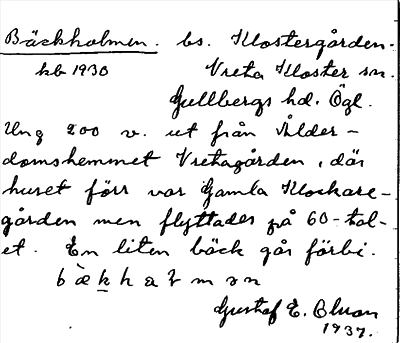 Bäckholmen. bs. Klostergården.
hb 1930 Vreta Kloster sn.
Gullbergs hd. Ögl.
Ung 200 v. ut från Ålder-
domshemmet Vretagården, där
huset förr var Gamla Klockare-
gården men flyttades på 60-tal-
et. En liten bäck går förbi.
Gustaf E.
1937.